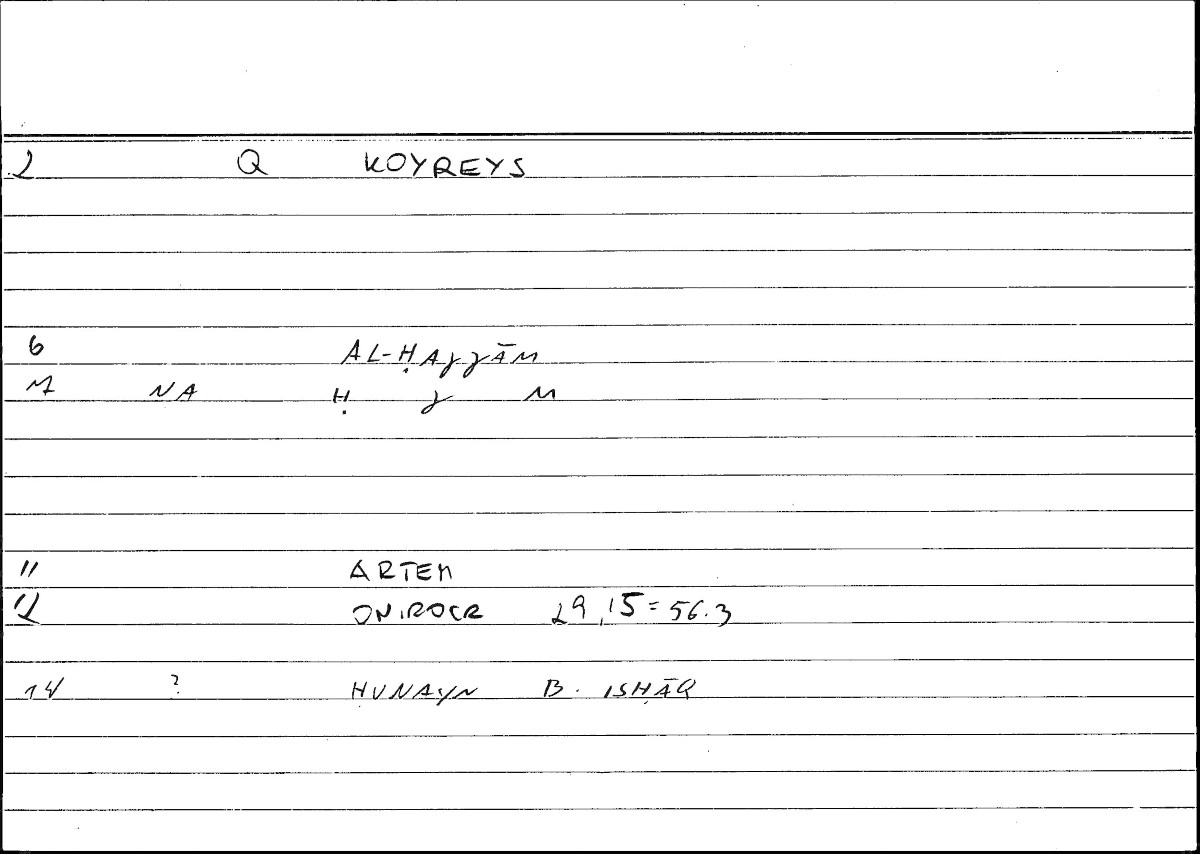 2 Q KOYREYS
6 AL-ḤAYYĀM
7 NA Ḥ Y M
11 ARTEM
12 ONIROCR 29,15=56.3
14 ? ḤUNAYN B. ISḤĀQ